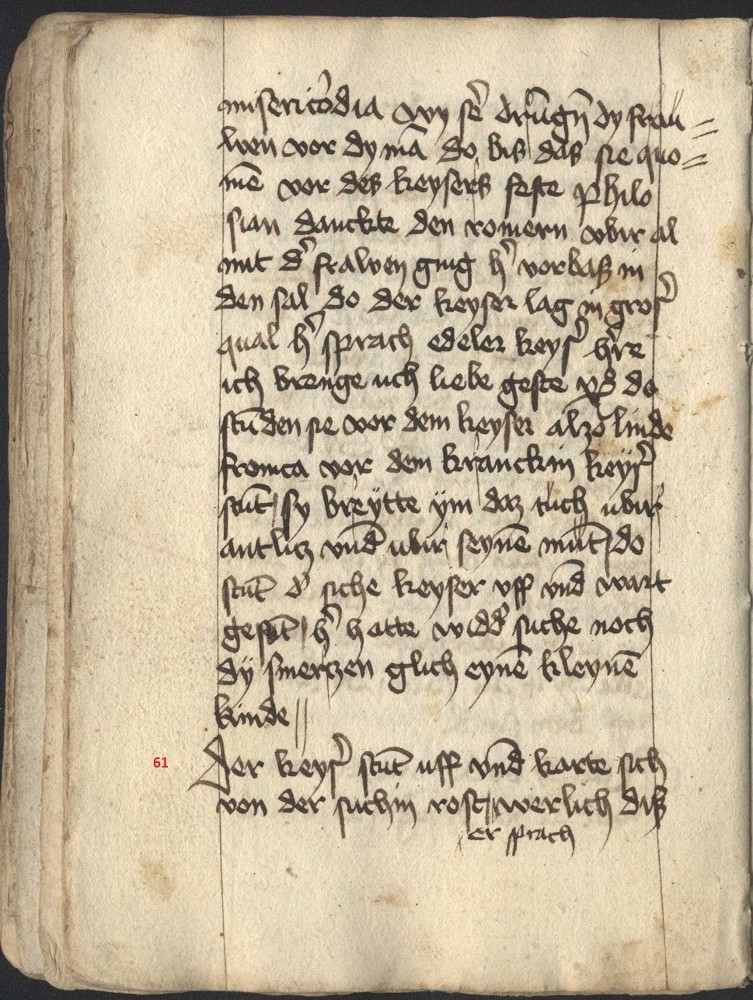 misericordia wy sē drūgñ dy frau=
wen vor dy mā do bis das sie quo=
mē vor des keysers feste philo
sian danckte den romern vbir al
mit d' frawen ging h' vorbaß in
den sal do der keyser lag in gros'
qual h' sprach edeler keys' h're
ich brenge uch liebe geste do
stūden sie vor dem keyser alzo linde
fronica vor dem kranckin keys'
stūt sy breytte ym daz tuch ubir
antlicz vnd ubir seynē mūt do
stūt d' siche keyser uff vnd wart
gesūt h' hatte widd' suche noch
dy smerczen glich eynē kleynē
kinde
61 Der keys' stūt uff vnd karte sich
von der suchin rost werlich diß
er sprach